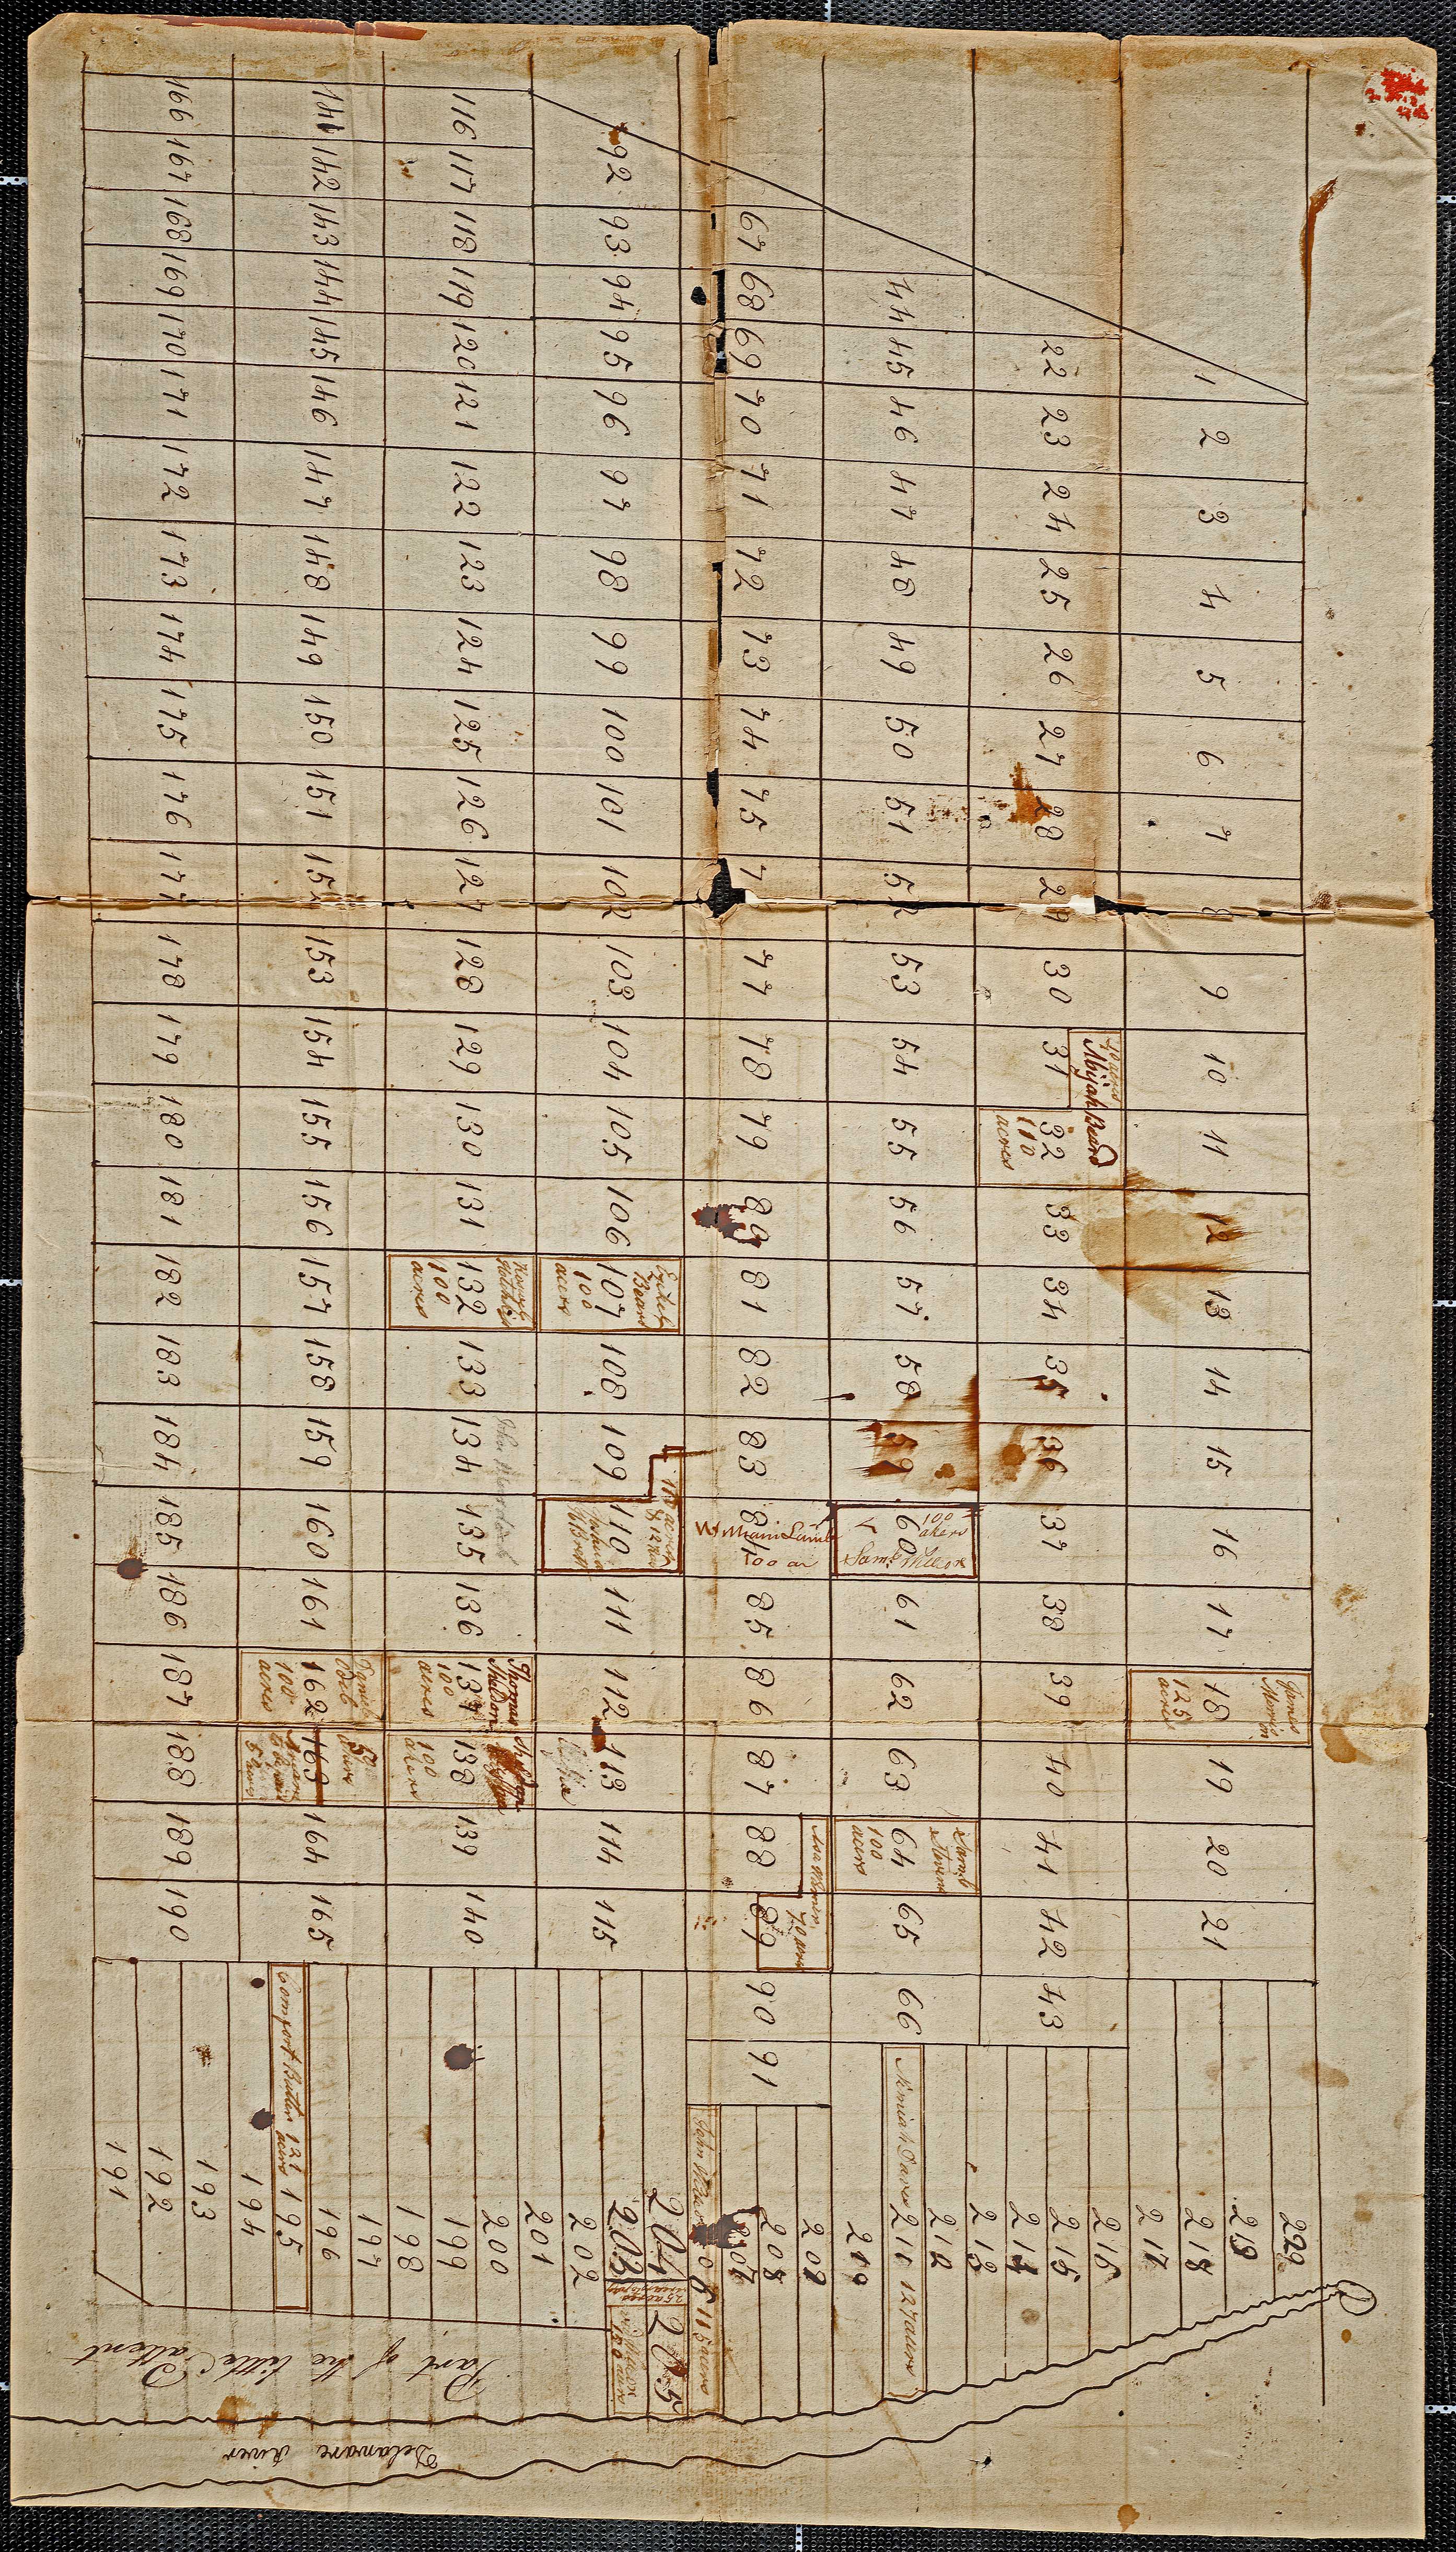 1 2 3 4 5 6 7 8 9 10 11 12 13 14 15 16 17 18 19 20 21
James
125
acres
22 23 24 25 26 27 28 29 30 31 32 33 34 35 36 37 38 39 40 41 42 43
40 acres
Abijah Beard
110
acres
44 45 46 47 48 49 50 51 52 53 54 55 56 57 58 59 60 61 62 63 64 65 66
100
akers
Saml
Saml
Stevens
100
acers
67 68 69 70 71 72 73 74 75 7 77 78 79 80 81 82 83 84 85 86 87 88 89 90 91
William Lamb
100 ar
70 acres
92 93 94 95 96 97 98 99 100 101 102 103 104 105 106 107 108 109 110 111 112 113 114 115
Beard
100
acers
Joshua
116 117 118 119 120 121 122 123 124 125 126 127 128 129 130 131 132 133 134 135 136 137 138 139 140
100
acres
Thomas
Sheldon
100
acres
100
acres
141 142 143 144 145 146 147 148 149 150 151 152 153 154 155 156 157 158 159 160 161 162 163 164 165
100
acres
166 167 168 169 170 171 172 173 174 175 176 177 178 179 180 181 182 183 184 185 186 187 188 189 190
220
219
218
217
216
215
214
213
212
Davis 211 127 acres
210
209
208
207
John 115 acres
204 205
203 25 acres
202
201
200
199
198
197
196
Comfort Butler 121 acres 195
194
193
192
191
Part of the little Pattent
Delaware River